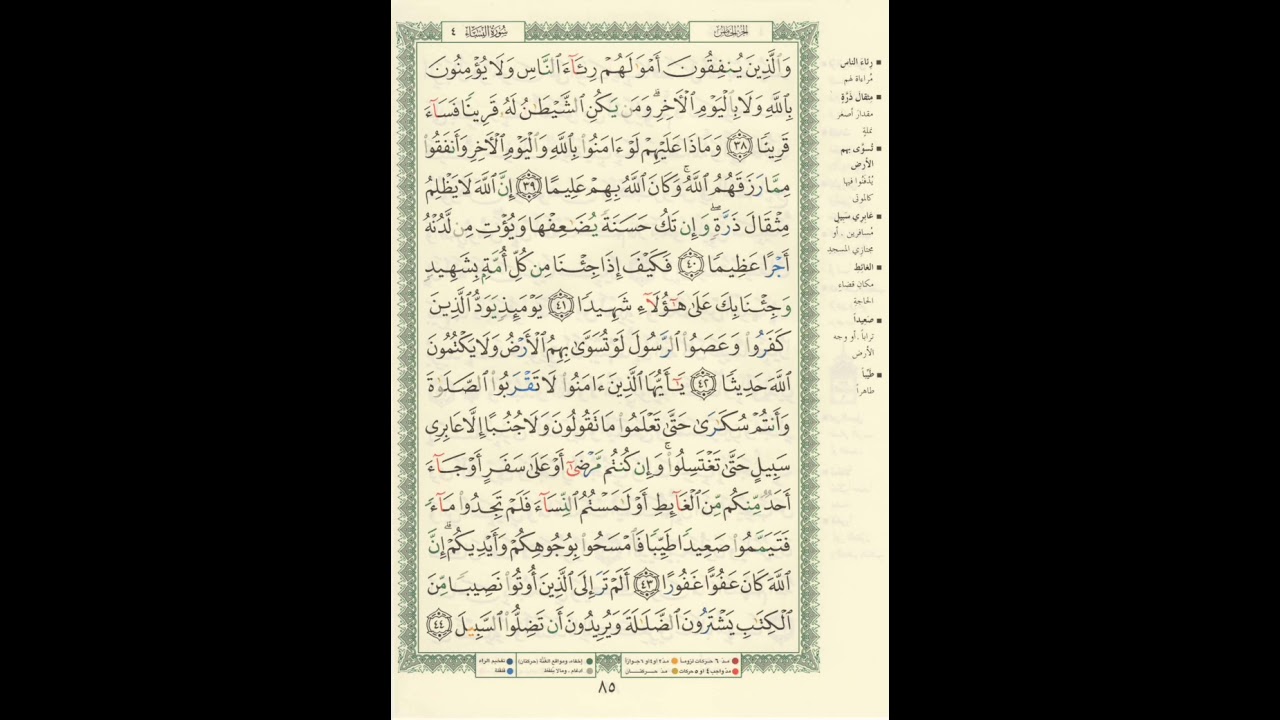 سُورَةُ النِّسَاءِ ٤
الجزء الخامس
وَالَّذِينَ يُنفِقُونَ أَمْوَٰلَهُمْ رِئَآءَ النَّاسِ وَلَا يُؤْمِنُونَ
بِاللَّهِ وَلَا بِالْيَوْمِ الْأَخِرِ ۗ وَمَن يَكُنِ الشَّيْطَٰنُ لَهُۥ قَرِينًا فَسَآءَ
قَرِينًا ٣٨ وَمَاذَا عَلَيْهِمْ لَوْ ءَامَنُوا بِاللَّهِ وَالْيَوْمِ الْأَخِرِ وَأَنفَقُوا
مِمَّا رَزَقَهُمُ اللَّهُ ۚ وَكَانَ اللَّهُ بِهِمْ عَلِيمًا ٣٩ إِنَّ اللَّهَ لَا يَظْلِمُ
مِثْقَالَ ذَرَّةٍ ۖ وَإِن تَكُ حَسَنَةً يُضَٰعِفْهَا وَيُؤْتِ مِن لَّدُنْهُ
أَجْرًا عَظِيمًا ٤٠ فَكَيْفَ إِذَا جِئْنَا مِن كُلِّ أُمَّةٍۭ بِشَهِيدٍ
وَجِئْنَا بِكَ عَلَىٰ هَٰٓؤُلَآءِ شَهِيدًا ٤١ يَوْمَئِذٍ يَوَدُّ الَّذِينَ
كَفَرُوا وَعَصَوُا الرَّسُولَ لَوْ تُسَوَّىٰ بِهِمُ الْأَرْضُ وَلَا يَكْتُمُونَ
اللَّهَ حَدِيثًا ٤٢ يَٰٓأَيُّهَا الَّذِينَ ءَامَنُوا لَا تَقْرَبُوا الصَّلَوٰةَ
وَأَنتُمْ سُكَٰرَىٰ حَتَّىٰ تَعْلَمُوا مَا تَقُولُونَ وَلَا جُنُبًا إِلَّا عَابِرِى
سَبِيلٍ حَتَّىٰ تَغْتَسِلُوا ۚ وَإِن كُنتُم مَّرْضَىٰٓ أَوْ عَلَىٰ سَفَرٍ أَوْ جَآءَ
أَحَدٌ مِّنكُم مِّنَ الْغَآئِطِ أَوْ لَٰمَسْتُمُ النِّسَآءَ فَلَمْ تَجِدُوا مَآءً
فَتَيَمَّمُوا صَعِيدًا طَيِّبًا فَامْسَحُوا بِوُجُوهِكُمْ وَأَيْدِيكُمْ ۗ إِنَّ
اللَّهَ كَانَ عَفُوًّا غَفُورًا ٤٣ أَلَمْ تَرَ إِلَى الَّذِينَ أُوتُوا نَصِيبًا مِّنَ
الْكِتَٰبِ يَشْتَرُونَ الضَّلَٰلَةَ وَيُرِيدُونَ أَن تَضِلُّوا السَّبِيلَ ٤٤
رِئاءَ الناس
مُراءاة لهم
مِثقالَ ذَرَّةٍ
مقدارَ أصغر
نملةٍ
تُسَوَّى بهم
الأرض
يُدفَنوا فيها
كالموتى
عَابِري سَبيلٍ
مُسافرين . أو
مجتازي المسجد
الغائِطِ
مكانِ قضاءِ
الحاجة
صَعيداً
تراباً . أو وجه
الأرض
طَيِّباً
طاهراً
مد ٦ حركات لزوماً مد ٢ او ٤ او ٦ جوازاً
مد واجب ٤ او ٥ حركات مد حركتان
إخفاء، ومواقع الغنّة (حركتان)
ادغام ، ومالا يُلفظ
تفخيم الراء
قلقلة
٨٥